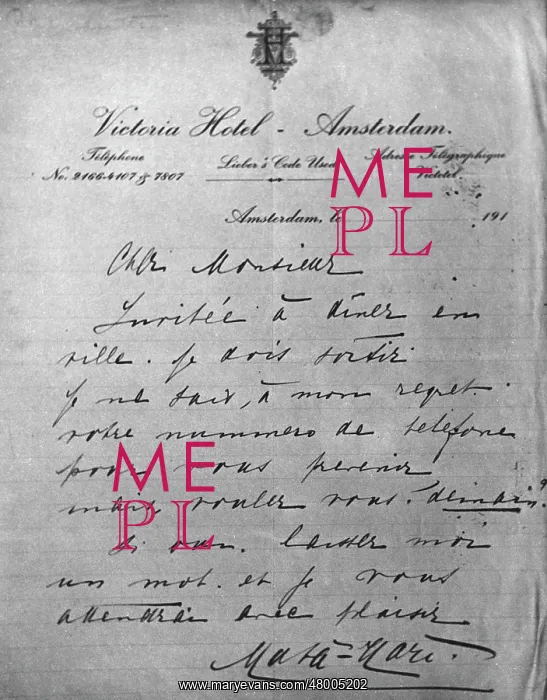 Victoria Hotel - Amsterdam.
Téléphone
No. 2166-4107 & 7807
Lieber's Code Used
Adresse Télégraphique
Victotel.
Amsterdam, le 191
ME
PL
Cher Monsieur
Invitée à dîner en
ville. je dois sortir
je ne sais, à mon regret.
votre nummero de telefone
pour vous prevenir
mais voulez vous. demain?
Si oui. laisser moi
un mot. et je vous
attendrai avec plaisir
Mata=Hari.
ME
PL
www.maryevans.com/48005202